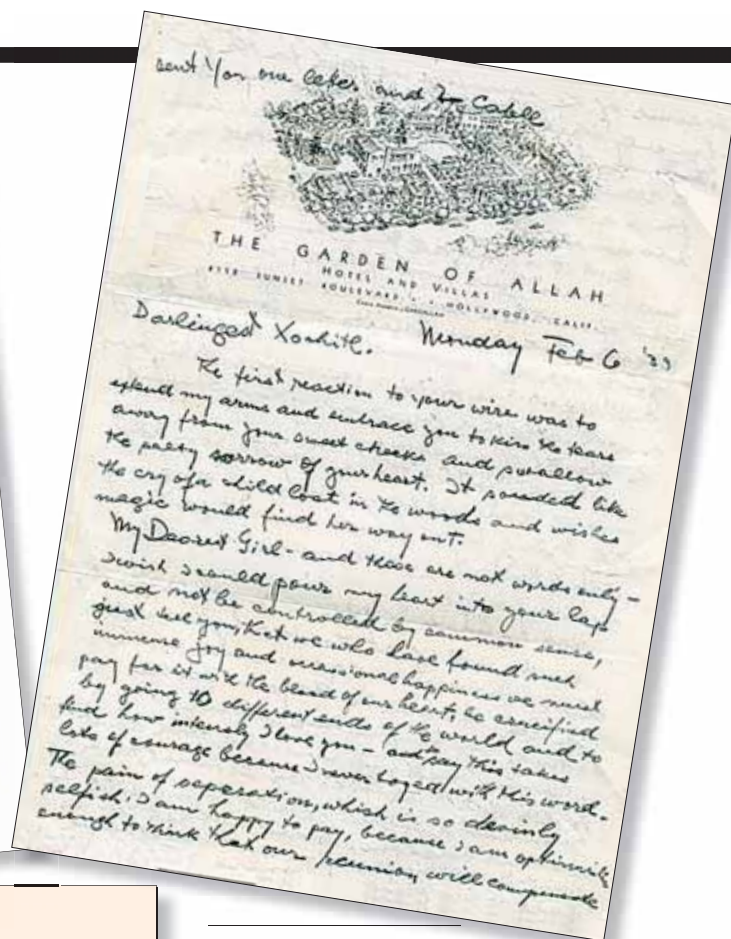 sent you one letter and Cable
THE GARDEN OF ALLAH
HOTEL AND VILLAS
SUNSET BOULEVARD HOLLYWOOD, CALIF.
Darlingest Xochitl. Monday Feb 6 '39
The first reaction to your wire was to
extend my arms and embrace you to kiss the tears
away from your sweet cheeks and swallow
the salty sorrow of your heart. It sounded like
the cry of a child lost in the woods and wishes
magic would find her way out.
My Dearest Girl - and those are not words only -
I wish I could pour my heart into your lap
and not be controlled by common sense,
just tell you, that we who have found such
immense joy and occasional happiness we must
pay for it with the blood of our heart, be crucified
by going to different ends of the world and to
find how intensely I love you - and to say this takes
lots of courage because I never toyed with this word.
The pain of separation, which is so
selfish, I am happy to pay, because I am optimistic
enough to think that our reunion will compensate